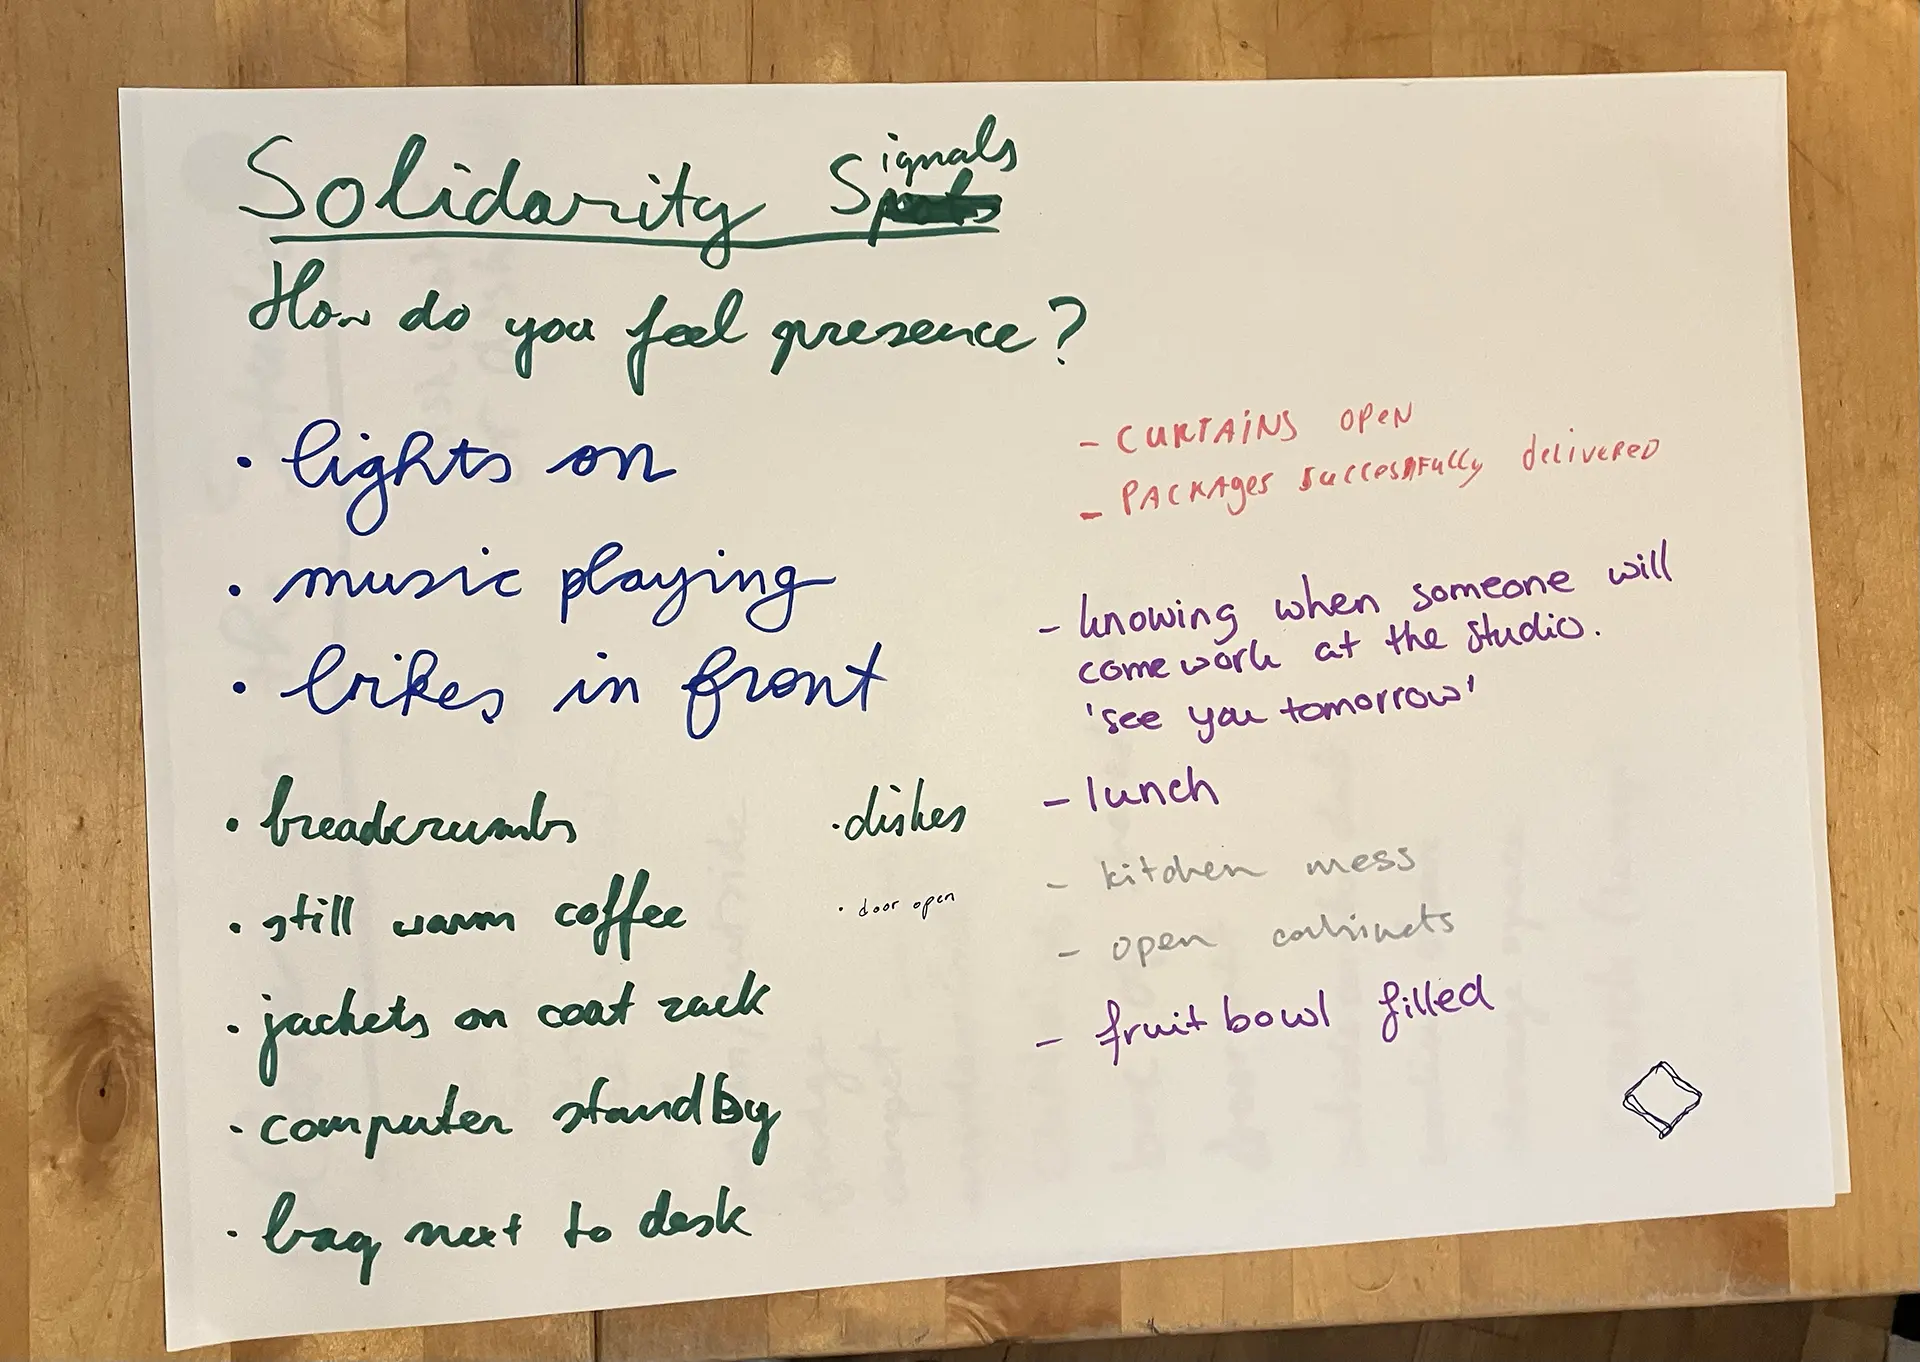 Solidarity Signals
How do you feel presence?
• lights on
• music playing
• bikes in front
• breadcrumbs
• still warm coffee
• jackets on coat rack
• computer standby
• bag next to desk
• dishes
• door open
- CURTAINS OPEN
- PACKAges successfully delivered
- knowing when someone will
come work at the studio.
'see you tomorrow'
- lunch
- kitchen mess
- open cabinets
- fruit bowl filled